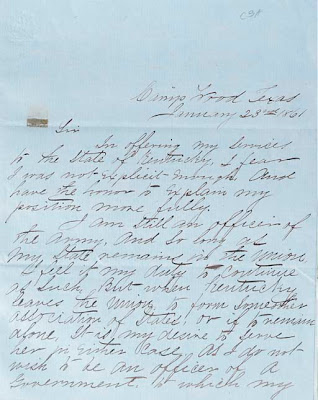 CSA
Camp Wood Texas
January 23rd 1861
Sir
In offering my services
to the State of Kentucky, I fear
I was not Explicit enough. And
have the honor to Explain my
position more fully.
I am still an officer of
the Army, and so long as
my State remains in the Union
I feel it my duty to continue
as such, But when Kentucky
leaves the Union to form another
association of States, or if to remain
alone, It is my desire to serve
her in Either Case, As I do not
wish to be an officer of A
Government, to which my